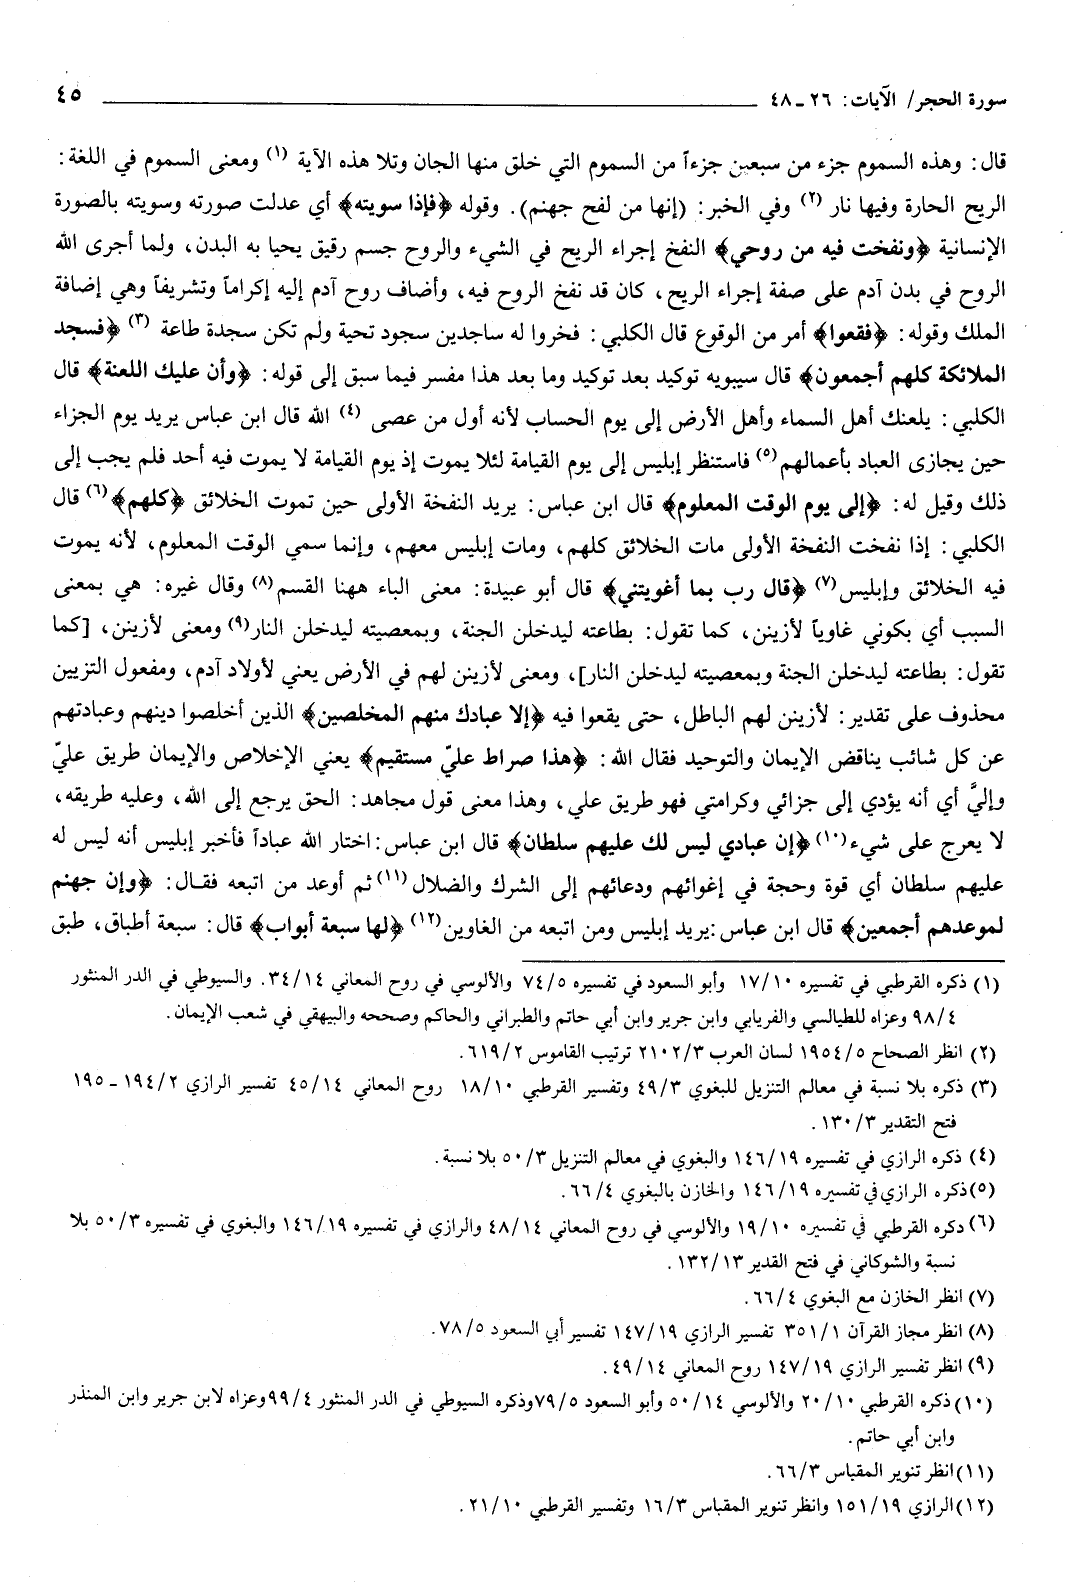 سورة الحجر/ الآيات: ٢٦ ـ ٤٨ ٤٥
قال: وهذه السموم جزء من سبعين جزءاً من السموم التي خلق منها الجان وتلا هذه الآية (١) ومعنى السموم في اللغة:
الريح الحارة وفيها نار (٢) وفي الخبر: (إنها من لفح جهنم). وقوله ﴿فإذا سويته﴾ أي عدلت صورته وسويته بالصورة
الإنسانية ﴿ونفخت فيه من روحي﴾ النفخ إجراء الريح في الشيء والروح جسم رقيق يحيا به البدن، ولما أجرى الله
الروح في بدن آدم على صفة إجراء الريح، كان قد نفخ الروح فيه، وأضاف روح آدم إليه إكراماً وتشريفاً وهي إضافة
الملك وقوله: ﴿فقعوا﴾ أمر من الوقوع قال الكلبي: فخروا له ساجدين سجود تحية ولم تكن سجدة طاعة (٣) ﴿فسجد
الملائكة كلهم أجمعون﴾ قال سيبويه توكيد بعد توكيد وما بعد هذا مفسر فيما سبق إلى قوله: ﴿وأن عليك اللعنة﴾ قال
الكلبي: يلعنك أهل السماء وأهل الأرض إلى يوم الحساب لأنه أول من عصى (٤) الله قال ابن عباس يريد يوم الجزاء
حين يجازى العباد بأعمالهم(٥) فاستنظر إبليس إلى يوم القيامة لئلا يموت إذ يوم القيامة لا يموت فيه أحد فلم يجب إلى
ذلك وقيل له: ﴿إلى يوم الوقت المعلوم﴾ قال ابن عباس: يريد النفخة الأولى حين تموت الخلائق ﴿كلهم﴾(٦) قال
الكلبي: إذا نفخت النفخة الأولى مات الخلائق كلهم، ومات إبليس معهم، وإنما سمي الوقت المعلوم، لأنه يموت
فيه الخلائق وإبليس(٧) ﴿قال رب بما أغويتني﴾ قال أبو عبيدة: معنى الباء ههنا القسم(٨) وقال غيره: هي بمعنى
السبب أي بكوني غاوياً لأزينن، كما تقول: بطاعته ليدخلن الجنة، وبمعصيته ليدخلن النار(٩) ومعنى لأزينن، [كما
تقول: بطاعته ليدخلن الجنة وبمعصيته ليدخلن النار]، ومعنى لأزينن لهم في الأرض يعني لأولاد آدم، ومفعول التزيين
محذوف على تقدير: لأزينن لهم الباطل، حتى يقعوا فيه ﴿إلا عبادك منهم المخلصين﴾ الذين أخلصوا دينهم وعبادتهم
عن كل شائب يناقض الإيمان والتوحيد فقال الله: ﴿هذا صراط عليّ مستقيم﴾ يعني الإخلاص والإيمان طريق عليّ
وإليَّ أي أنه يؤدي إلى جزائي وكرامتي فهو طريق علي، وهذا معنى قول مجاهد: الحق يرجع إلى الله، وعليه طريقه،
لا يعرج على شيء(١٠) ﴿إن عبادي ليس لك عليهم سلطان﴾ قال ابن عباس: اختار الله عباداً فأخبر إبليس أنه ليس له
عليهم سلطان أي قوة وحجة في إغوائهم ودعائهم إلى الشرك والضلال(١١) ثم أوعد من اتبعه فقال: ﴿وإن جهنم
لموعدهم أجمعين﴾ قال ابن عباس: يريد إبليس ومن اتبعه من الغاوين(١٢) ﴿لها سبعة أبواب﴾ قال: سبعة أطباق، طبق
(١) ذكره القرطبي في تفسيره ١٧/١٠ وأبو السعود في تفسيره ٧٤/٥ والألوسي في روح المعاني ٣٤/١٤. والسيوطي في الدر المنثور
٩٨/٤ وعزاه للطيالسي والفريابي وابن جرير وابن أبي حاتم والطبراني والحاكم وصححه والبيهقي في شعب الإيمان.
(٢) انظر الصحاح ١٩٥٤/٥ لسان العرب ٢١٠٢/٣ ترتيب القاموس ٦١٩/٢.
(٣) ذكره بلا نسبة في معالم التنزيل للبغوي ٤٩/٣ وتفسير القرطبي ١٨/١٠ روح المعاني ٤٥/١٤ تفسير الرازي ١٩٤/٢ ـ ١٩٥
فتح التقدير ١٣٠/٣.
(٤) ذكره الرازي في تفسيره ١٤٦/١٩ والبغوي في معالم التنزيل ٥٠/٣ بلا نسبة.
(٥) ذكره الرازي في تفسيره ١٤٦/١٩ والخازن بالبغوي ٦٦/٤.
(٦) دكره القرطبي في تفسيره ١٩/١٠ والألوسي في روح المعاني ٤٨/١٤ والرازي في تفسيره ١٤٦/١٩ والبغوي في تفسيره ٥٠/٣ بلا
نسبة والشوكاني في فتح القدير ١٣٢/١٣.
(٧) انظر الخازن مع البغوي ٦٦/٤.
(٨) انظر مجاز القرآن ٣٥١/١ تفسير الرازي ١٤٧/١٩ تفسير أبي السعود ٧٨/٥.
(٩) انظر تفسير الرازي ١٤٧/١٩ روح المعاني ٤٩/١٤.
(١٠) ذكره القرطبي ٢٠/١٠ والألوسي ٥٠/١٤ وأبو السعود ٧٩/٥ وذكره السيوطي في الدر المنثور ٩٩/٤ وعزاه لابن جرير وابن المنذر
وابن أبي حاتم.
(١١) انظر تنوير المقباس ٦٦/٣.
(١٢) الرازي ١٥١/١٩ وانظر تنوير المقباس ١٦/٣ وتفسير القرطبي ٢١/١٠.